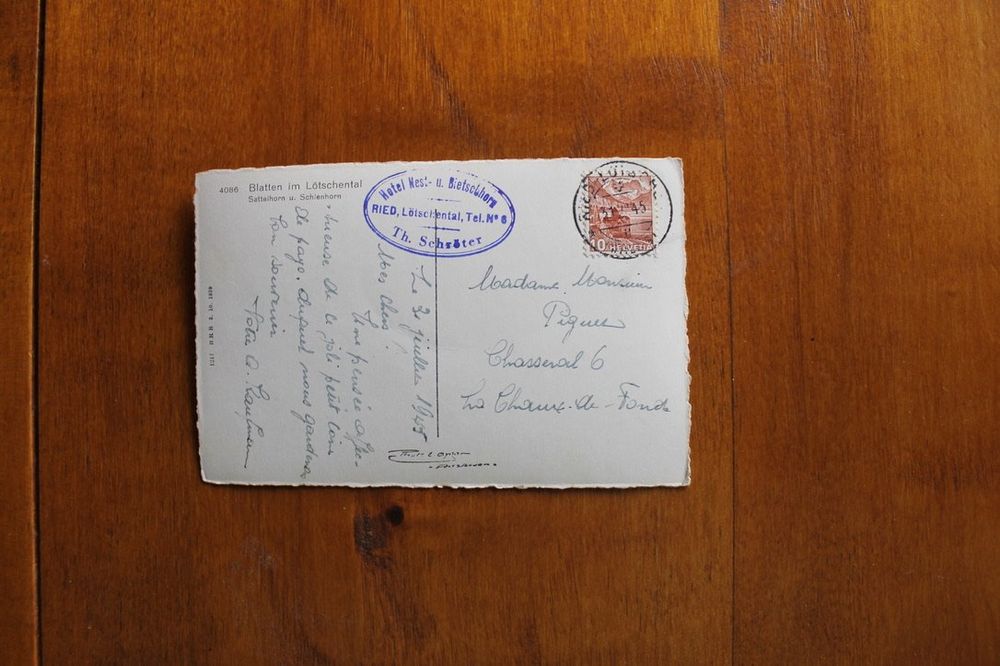 4086 Blatten im Lötschental
Sattelhorn u. Schienhorn
Hotel Nest- u. Bietschhorn
RIED, Lötschental, Tel. Nº 6
Th. Schröter
10 HELVETIA
Madame, Monsieur
Chasseral 6
La Chaux-de-Fonds
Le juillet 1945
Mes chers,
Une pensée affec-
tueuse de ce joli petit coin
de pays, duquel nous gardons
bon souvenir
Votre